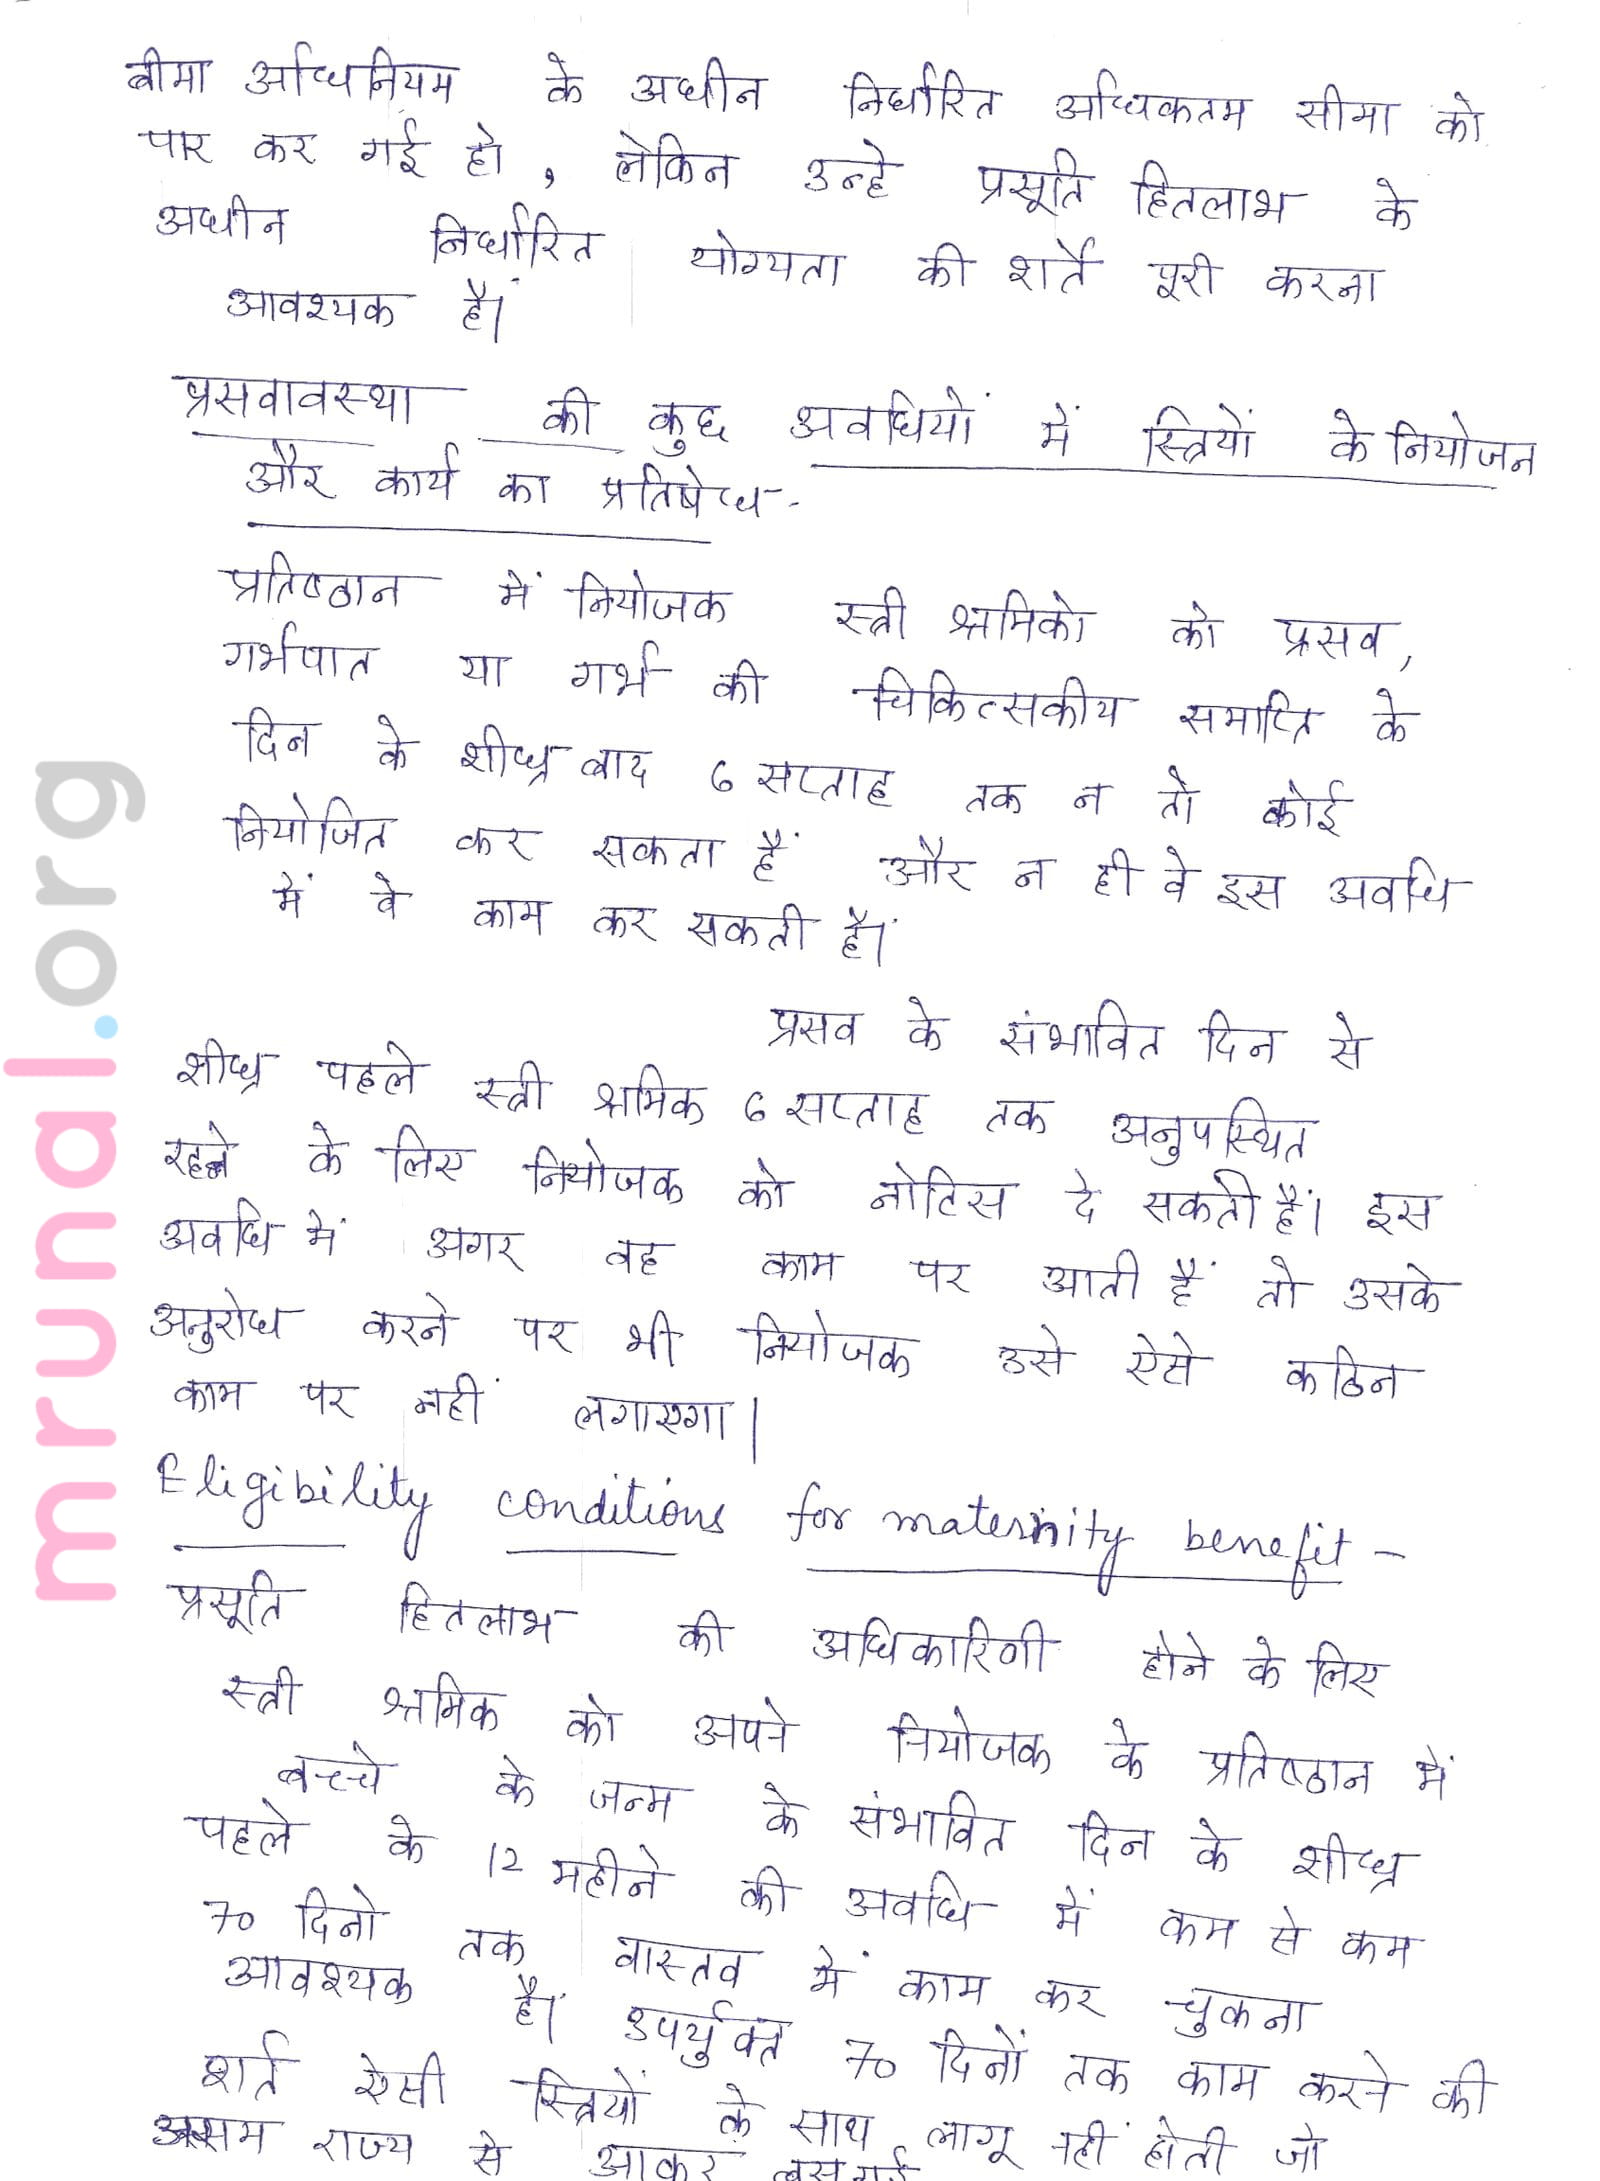 बीमा अधिनियम के अधीन निर्धारित अधिकतम सीमा को
पार कर गई हो, लेकिन उन्हे प्रसूति हितलाभ के
अधीन निर्धारित योग्यता की शर्तें पूरी करना
आवश्यक हैं।
प्रसवावस्था की कुछ अवधियों में स्त्रियों के नियोजन
और कार्य का प्रतिषेध -
प्रतिष्ठान में नियोजक स्त्री श्रमिको को प्रसव,
गर्भपात या गर्भ की चिकित्सकीय समाप्ति के
दिन के शीघ्र बाद 6 सप्ताह तक न तो कोई
नियोजित कर सकता हैं और न ही वे इस अवधि
में वे काम कर सकती हैं।
प्रसव के संभावित दिन से
शीघ्र पहले स्त्री श्रमिक 6 सप्ताह तक अनुपस्थित
रहने के लिए नियोजक को नोटिस दे सकती हैं। इस
अवधि में अगर वह काम पर आती हैं तो उसके
अनुरोध करने पर भी नियोजक उसे ऐसे कठिन
काम पर नहीं लगाएगा।
Eligibility conditions for maternity benefit -
प्रसूति हितलाभ की अधिकारिणी होने के लिए
स्त्री श्रमिक को अपने नियोजक के प्रतिष्ठान में
बच्चे के जन्म के संभावित दिन के शीघ्र
पहले के 12 महीने की अवधि में कम से कम
70 दिनो तक वास्तव में काम कर चुकना
आवश्यक हैं। उपर्युक्त 70 दिनों तक काम करने की
शर्त ऐसी स्त्रियों के साथ लागू नहीं होती जो
असम राज्य से आकर बस गई
mrunal.org